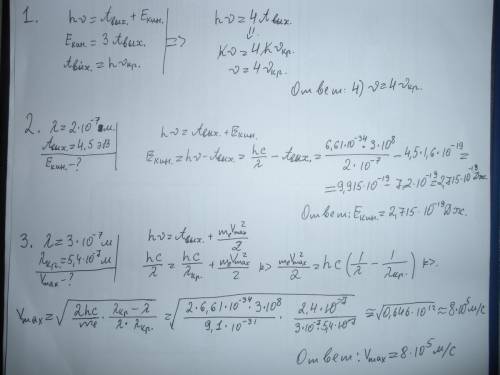 1. hν = Aвых. + Eкин.
Eкин. = 3 Aвых. => hν = 4 Aвых.
Aвых. = hνкр. ⇓
hν = 4 hνкр.
ν = 4 νкр.
Ответ: 4) ν = 4 νкр.
2. λ = 2·10⁻⁷ м.
Aвых. = 4,5 эВ
Eкин. - ?
hν = Aвых. + Eкин.
Eкин. = hν - Aвых. = hc/λ - Aвых. = 6,61·10⁻³⁴·3·10⁸ / 2·10⁻⁷ - 4,5·1,6·10⁻¹⁹ =
= 9,915·10⁻¹⁹ - 7,2·10⁻¹⁹ = 2,715·10⁻¹⁹ Дж.
Ответ: Eкин. = 2,715·10⁻¹⁹ Дж.
3. λ = 3·10⁻⁷ м
λкр. = 5,4·10⁻⁷ м
Vmax - ?
hν = Aвых. + mₑVmax²/2
hc/λ = hc/λкр. + mₑVmax²/2 => mₑVmax²/2 = hc (1/λ - 1/λкр.) =>
Vmax = √(2hc/mₑ · (λкр. - λ)/(λ·λкр.)) = √(2·6,61·10⁻³⁴·3·10⁸ / 9,1·10⁻³¹ · 2,4·10⁻⁷ / 3·10⁻⁷·5,4·10⁻⁷) = √(0,646·10¹²) ≈ 8·10⁵ м/с
Ответ: Vmax = 8·10⁵ м/с